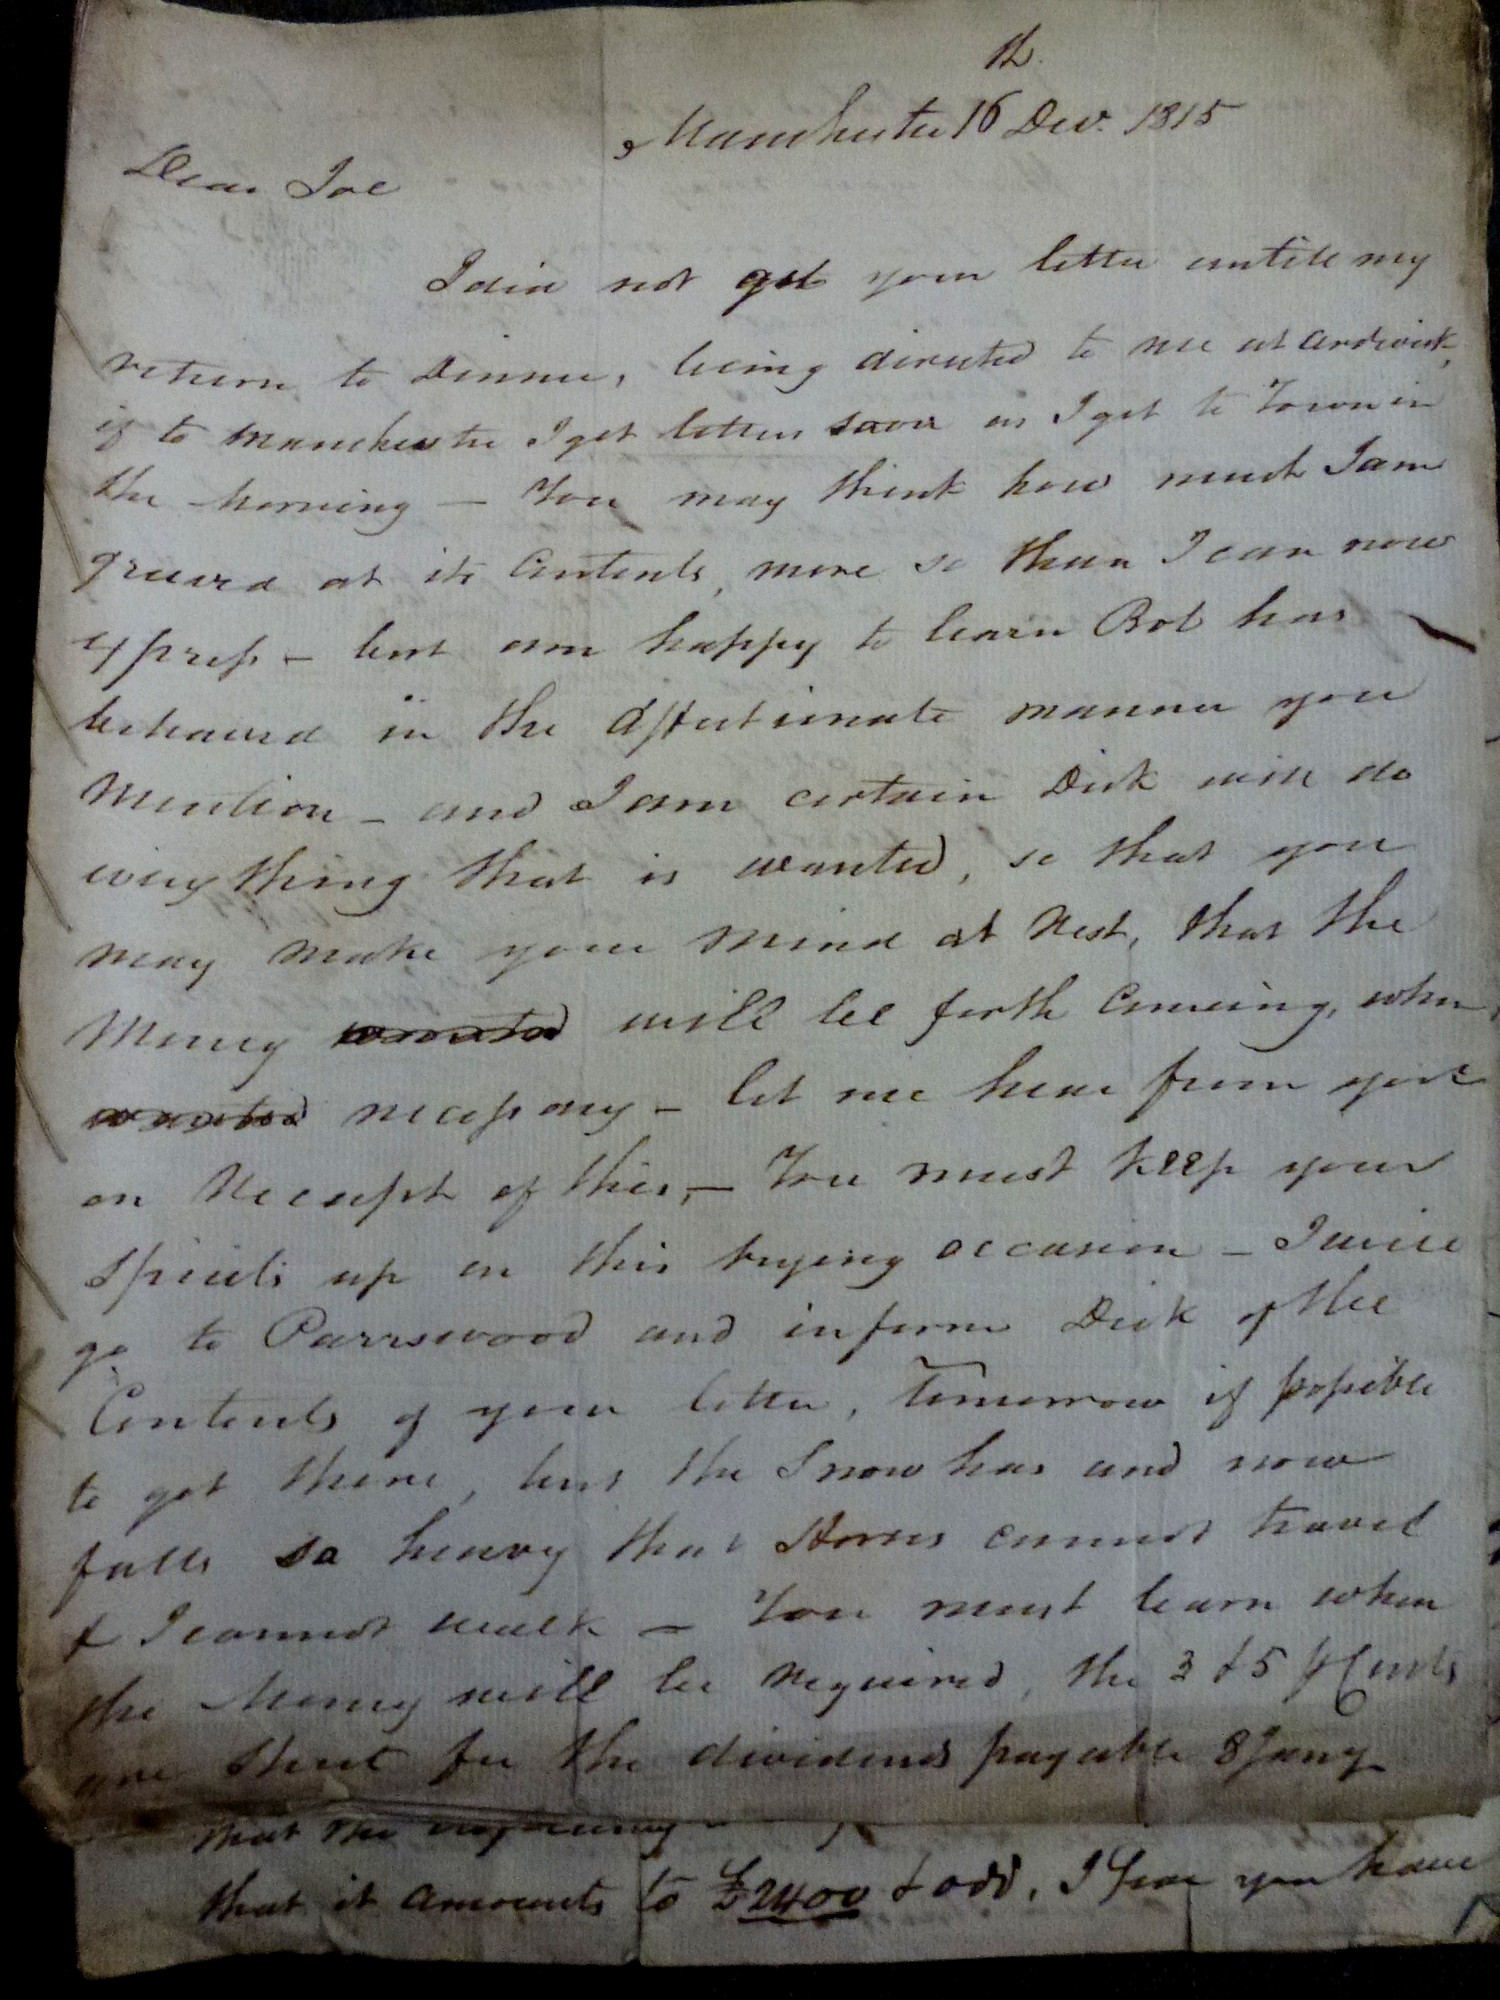 Manchester 16 Decr. 1815
Dear Joe
I did not get your letter untill my
return to Dinner, being directed to me at Ardwick,
if to Manchester I get letters soon as I get to Town in
the Morning — You may think how much I am
greived at its Contents, more so than I can now
express — but am happy to learn Bob has
behaved in the Affectionate manner you
Mention — and I am certain Dick will do
every thing that is wanted, so that you
may make your Mind at Rest, that the
Money wanted will be forth Coming, when
wanted necessary — let me hear from you
on Receipt of this, — You must keep your
Spirits up on this trying occasion — I will
go to Parrswood and inform Dick of the
Contents of your letter, Tomorrow if possible
to get there, but the Snow has and now
falls so heavy that Horses cannot travel
& I cannot walk — You must learn when
the Money will be Required, the 3 & 5 ⅌ Cents
are Shut for the dividends payable 8 Jany
that the
that it amounts to £2400 & odd, I fear you have